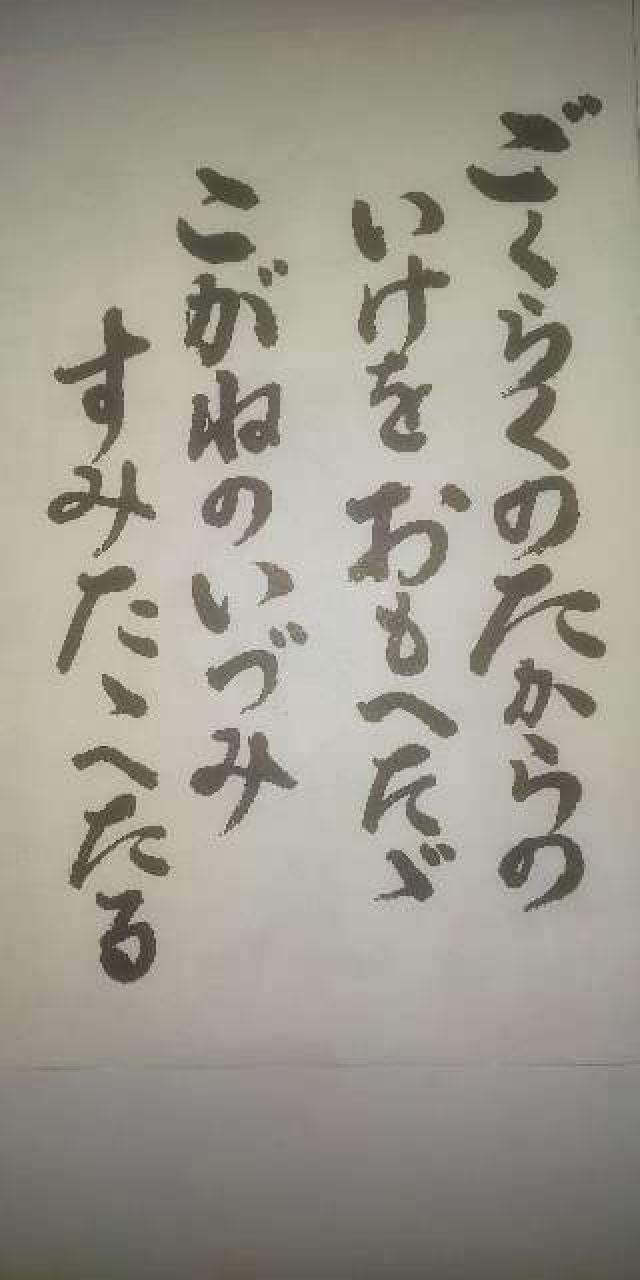 ごくらくのたからの
いけをおもへたゞ
こがねのいづみ
すみたゝへたる